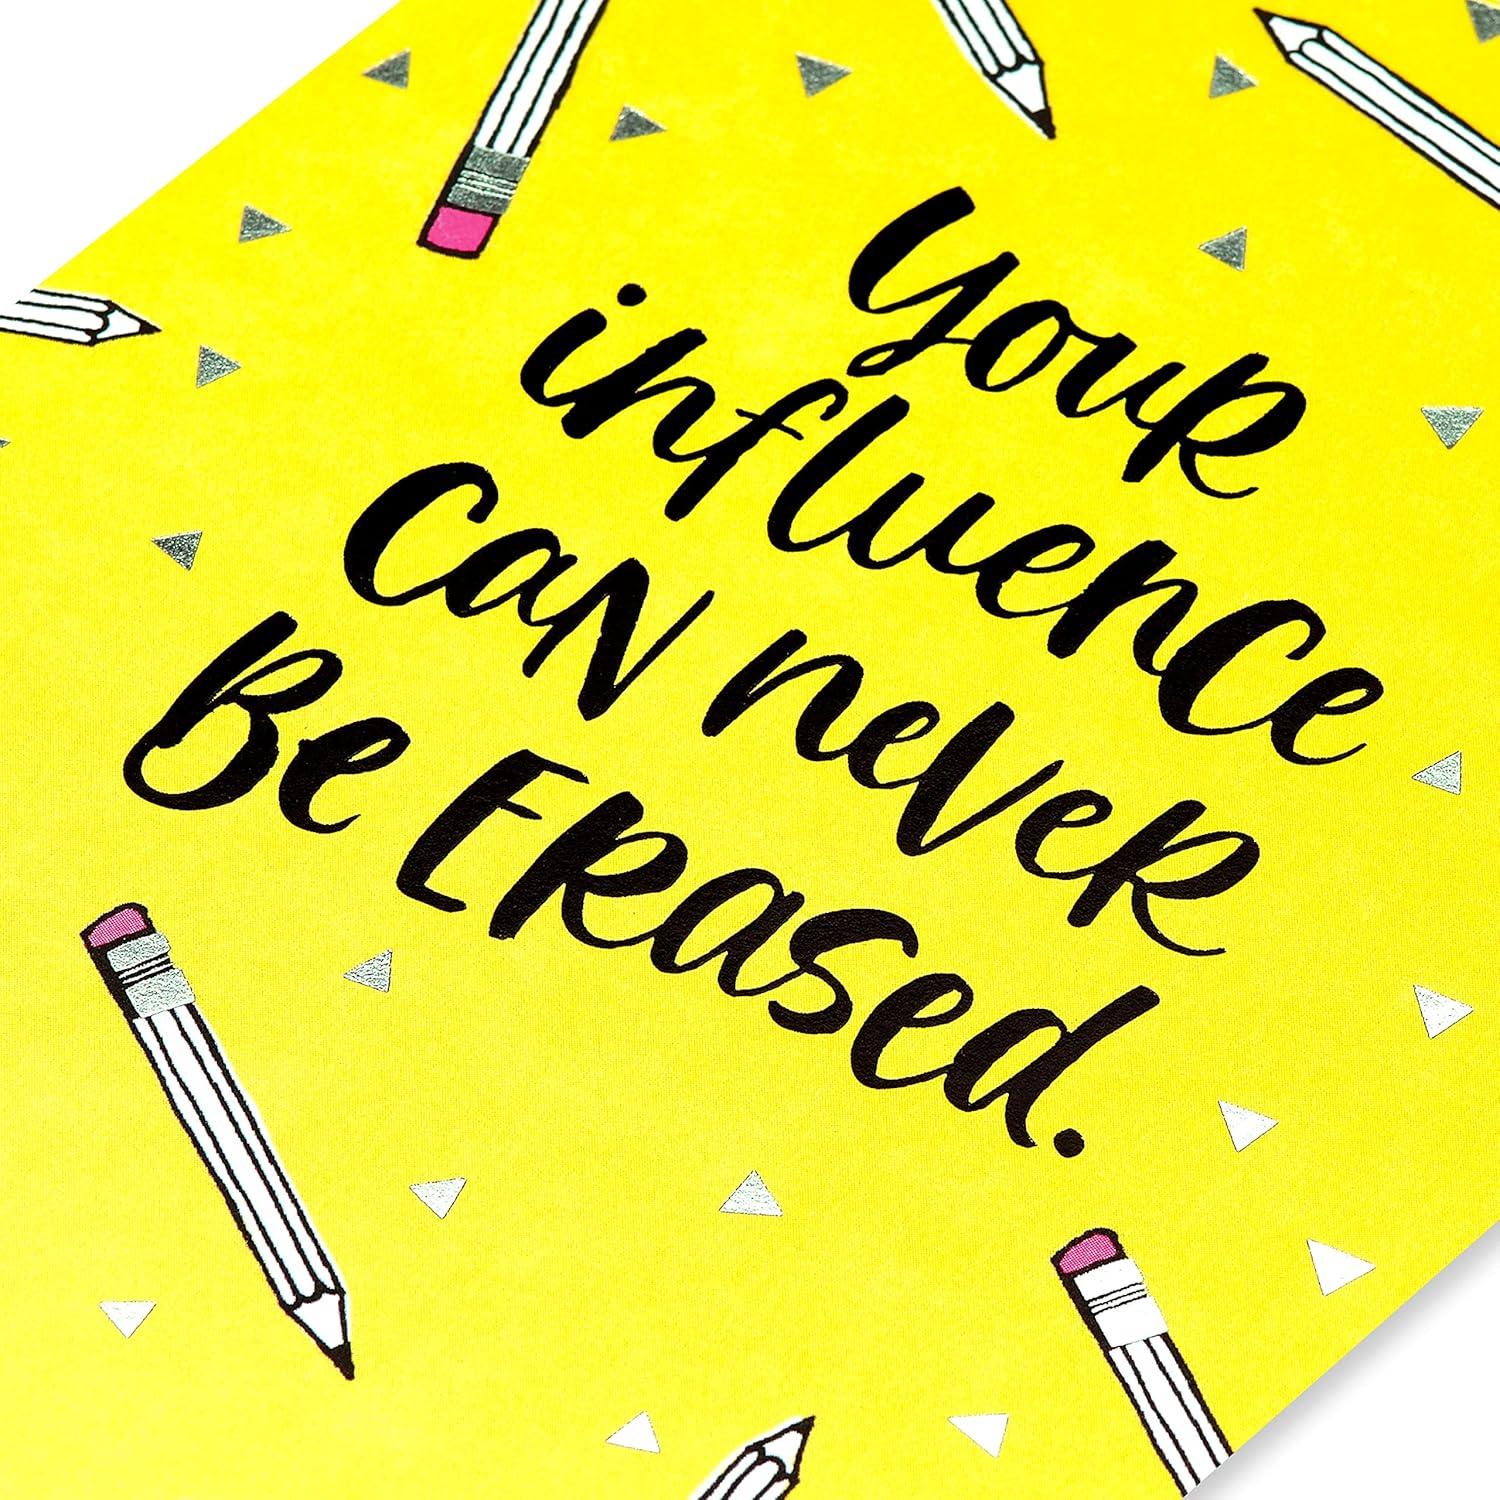 your
influence
can never
Be Erased.